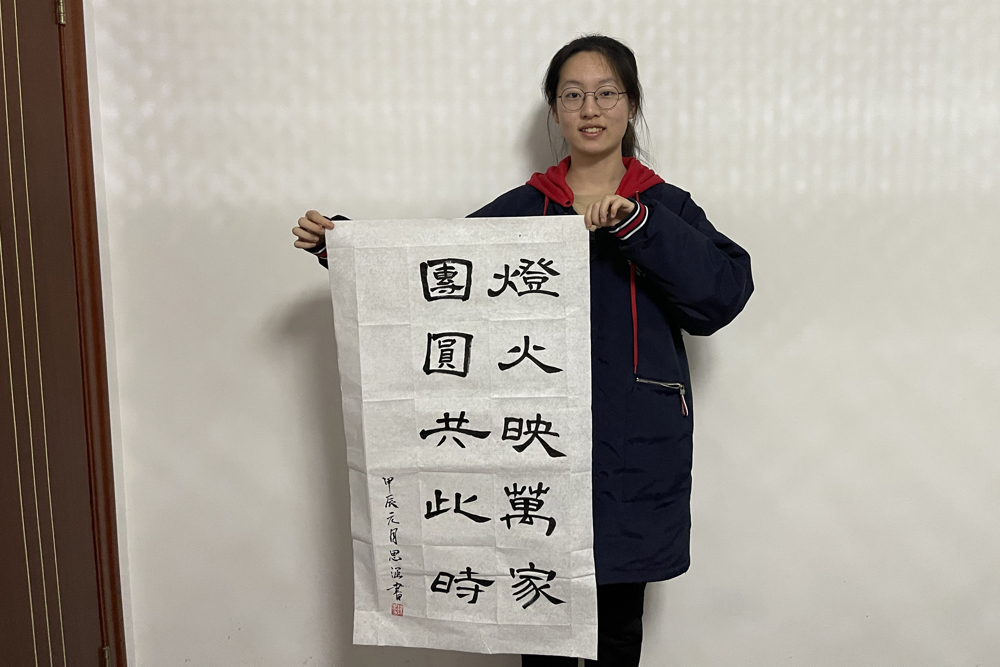 燈火映萬家
團圓共此時
甲辰元月思涵書